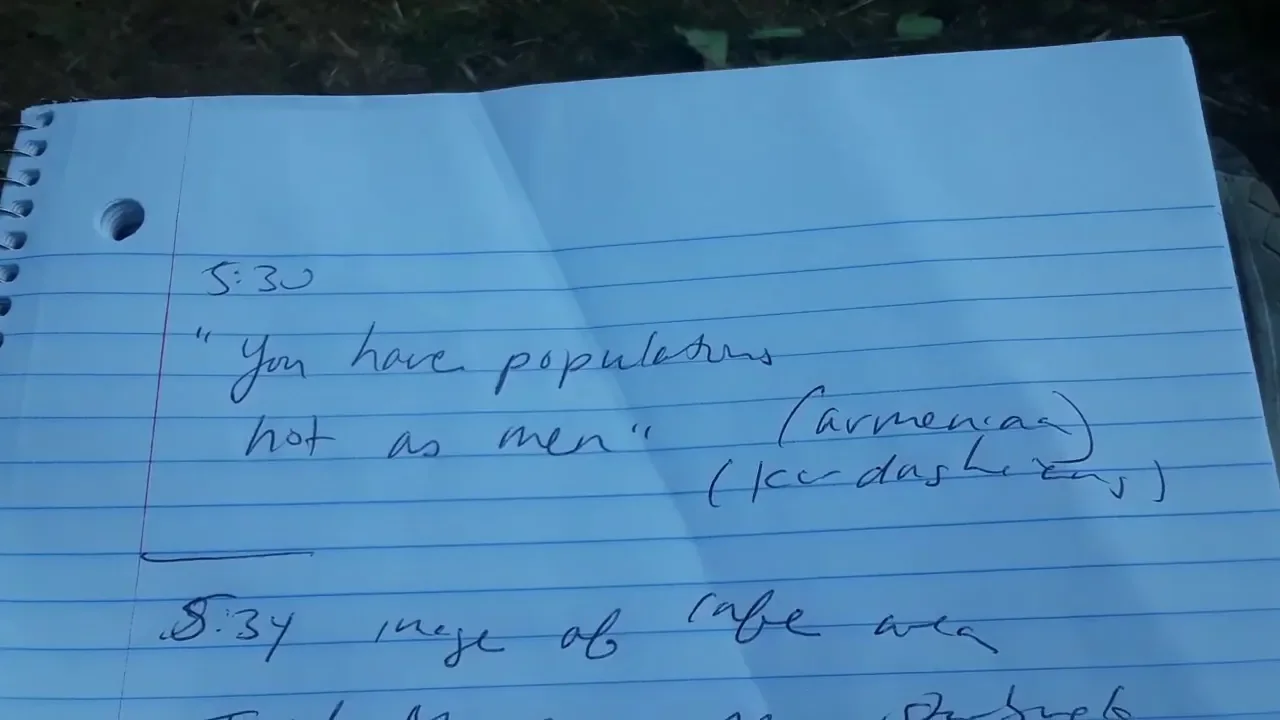 5:30
"You have populations
hot as men" (armenian)
(kardashians)
5:34 image of cafe area